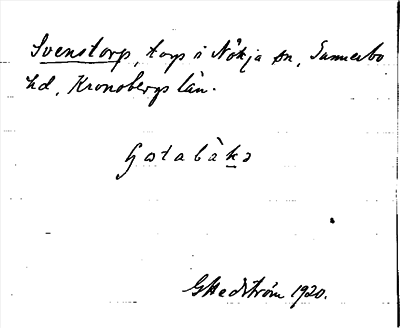 Svenstorp, torp i Nöttja sn, Sunnerbo
hd, Kronobergs län.
Gatabàka
G Hedström 1920.